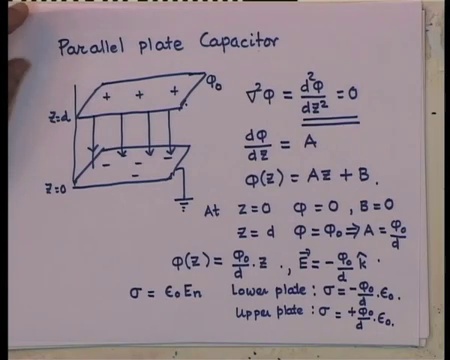 Parallel plate Capacitor
φ₀
+ + +
z=d
- - -
-
z=0
∇²φ = d²φ/dz² = 0
dφ/dz = A
φ(z) = Az + B.
At z=0 φ=0, B=0
z=d φ=φ₀ ⇒ A = φ₀/d
φ(z) = φ₀/d . z , E⃗ = -φ₀/d k̂
σ = ϵ₀En Lower plate : σ = -φ₀/d . ϵ₀.
Upper plate : σ = +φ₀/d . ϵ₀.